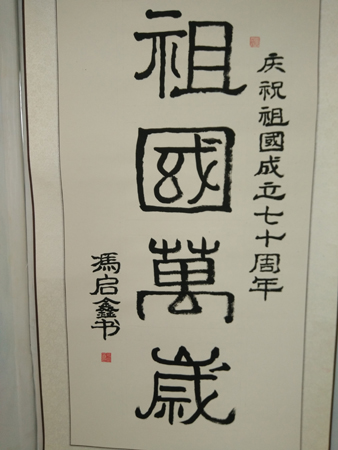 庆祝祖國成立七十周年
祖國萬歲
馮启鑫书